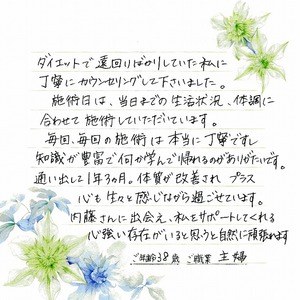 ダイエットで遠回りばかりしていた私に
丁寧にカウンセリングして下さいました。
施術日は、当日までの生活状況、体調に
合わせて施術していただいています。
毎回、毎回の施術は本当に丁寧ですし
知識が豊富で何か学んで帰れるのがありがたいです。
通い出して1年3ヶ月。体質が改善され プラス
心も生々と感じながら過ごせています。
内藤さんに出会え、私をサポートしてくれる
心強い存在がいると思うと自然に頑張れます
ご年齢38歳 ご職業 主婦